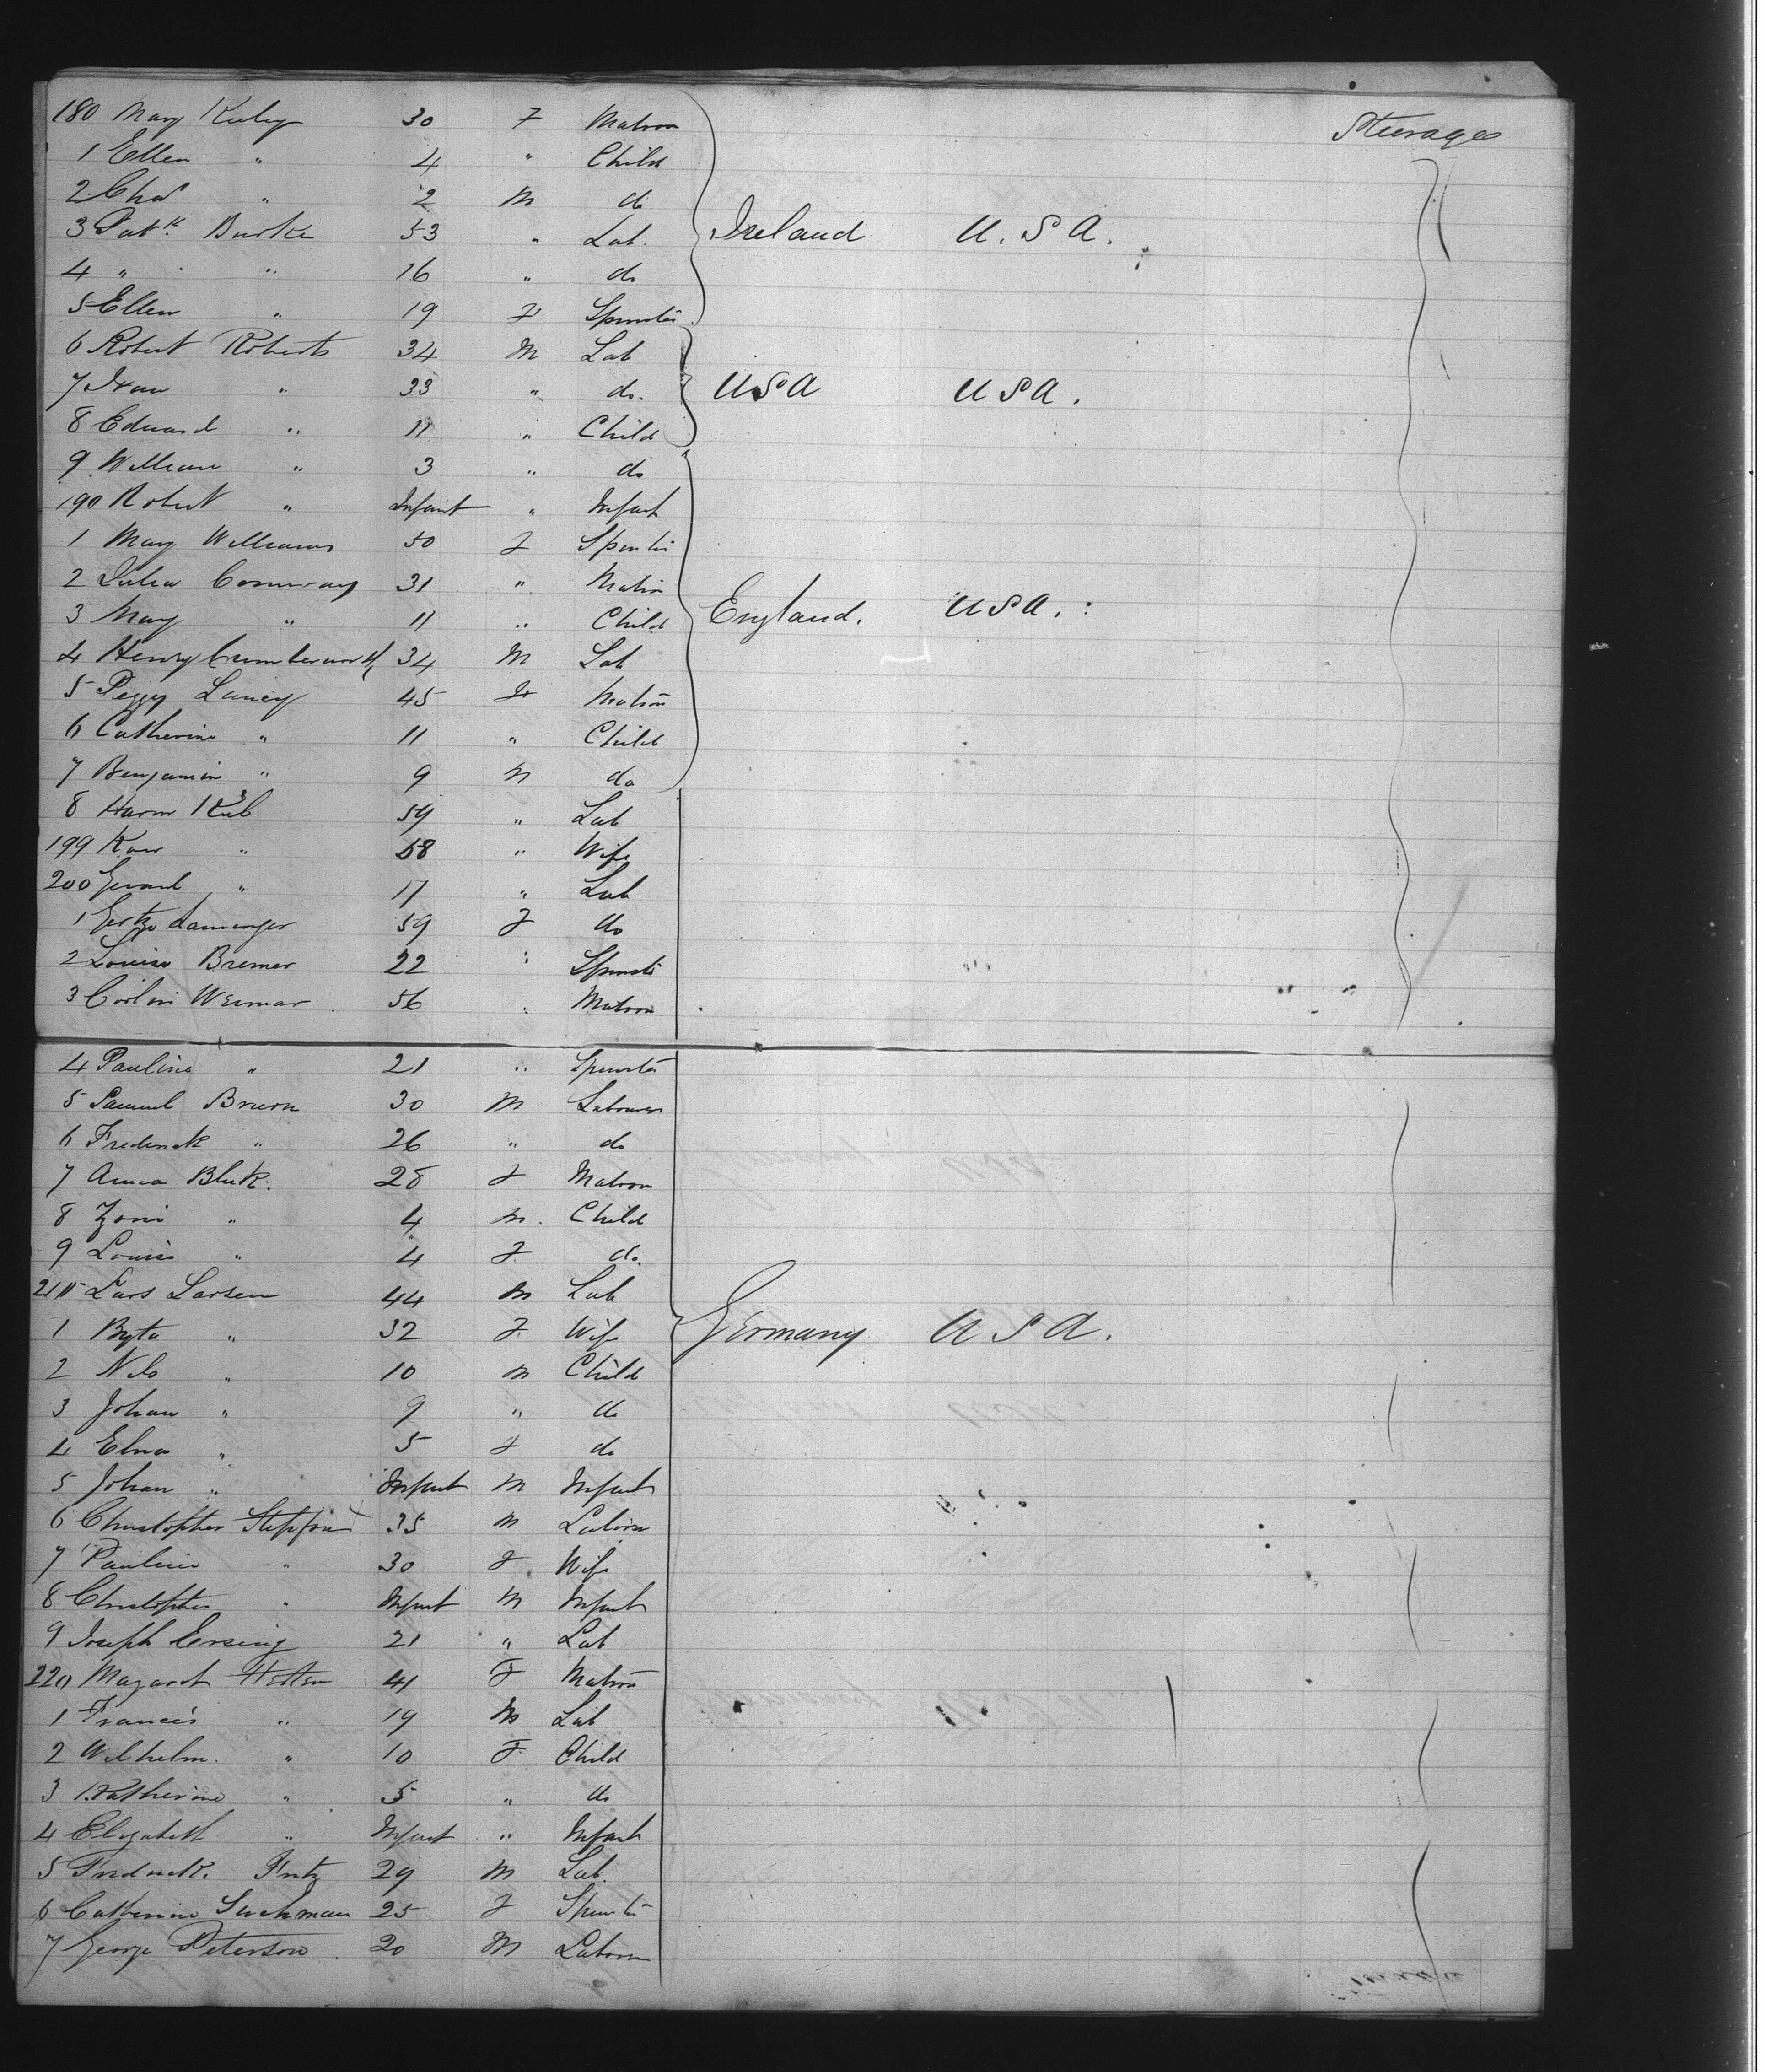 Steerage
180 Mary Kieley 30 F Matron
1 Ellen " 4 " Child
2 Chas " 2 M do
3 Patk. Burke 53 " Lab. Ireland U.S.A.
4 " " 16 " do
5 Ellen " 19 F Spinster
6 Robert Roberts 34 M Lab
7 " 33 " do. USA USA.
8 Edward " 11 " Child
9 William " 3 " do
190 Robert " Infant " Infant
1 Mary Williams 50 F Spinster
2 Julia Connway 31 " Matron
3 Mary " 11 " Child England. USA.
4 Henry Cumberworth 34 M Lab
5 Peggy Laney 45 F Matron
6 Catherine " 11 " Child
7 Benjamin " 9 M do
8 Harm 59 " Lab
199 " 58 " Wife
200 Gerard " 17 " Lab
1 59 F do
2 Louise Bremer 22 " Spinster
3 Weimar 56 " Matron
4 Pauline " 21 " Spinster
5 Samuel Bruon 30 M Labourer
6 Frederick " 26 " do
7 Anna Bluk. 28 F Matron
8 " 4 M. Child
9 Louise " 4 F. do.
210 Lars Larsen 44 M Lab
1 " 32 F. Wife Germany USA.
2 Nels " 10 M Child
3 Johan " 9 " do
4 Elna " 5 F do
5 Johan " Infant M Infant
6 Christopher 35 M Labour
7 Pauline " 30 F Wife
8 Christopher " Infant M Infant
9 Joseph Ersing 21 " Lab
220 Magaret 41 F Matron
1 Francis " 19 M Lab
2 Wilhelm. " 10 F. Child
3 Katherine " 5 " do
4 Elizabeth " Infant " Infant
5 Fredrick. Fritz 29 M Lab.
6 Catherine Suchman 25 F Spinster
7 George Peterson 20 M Labour